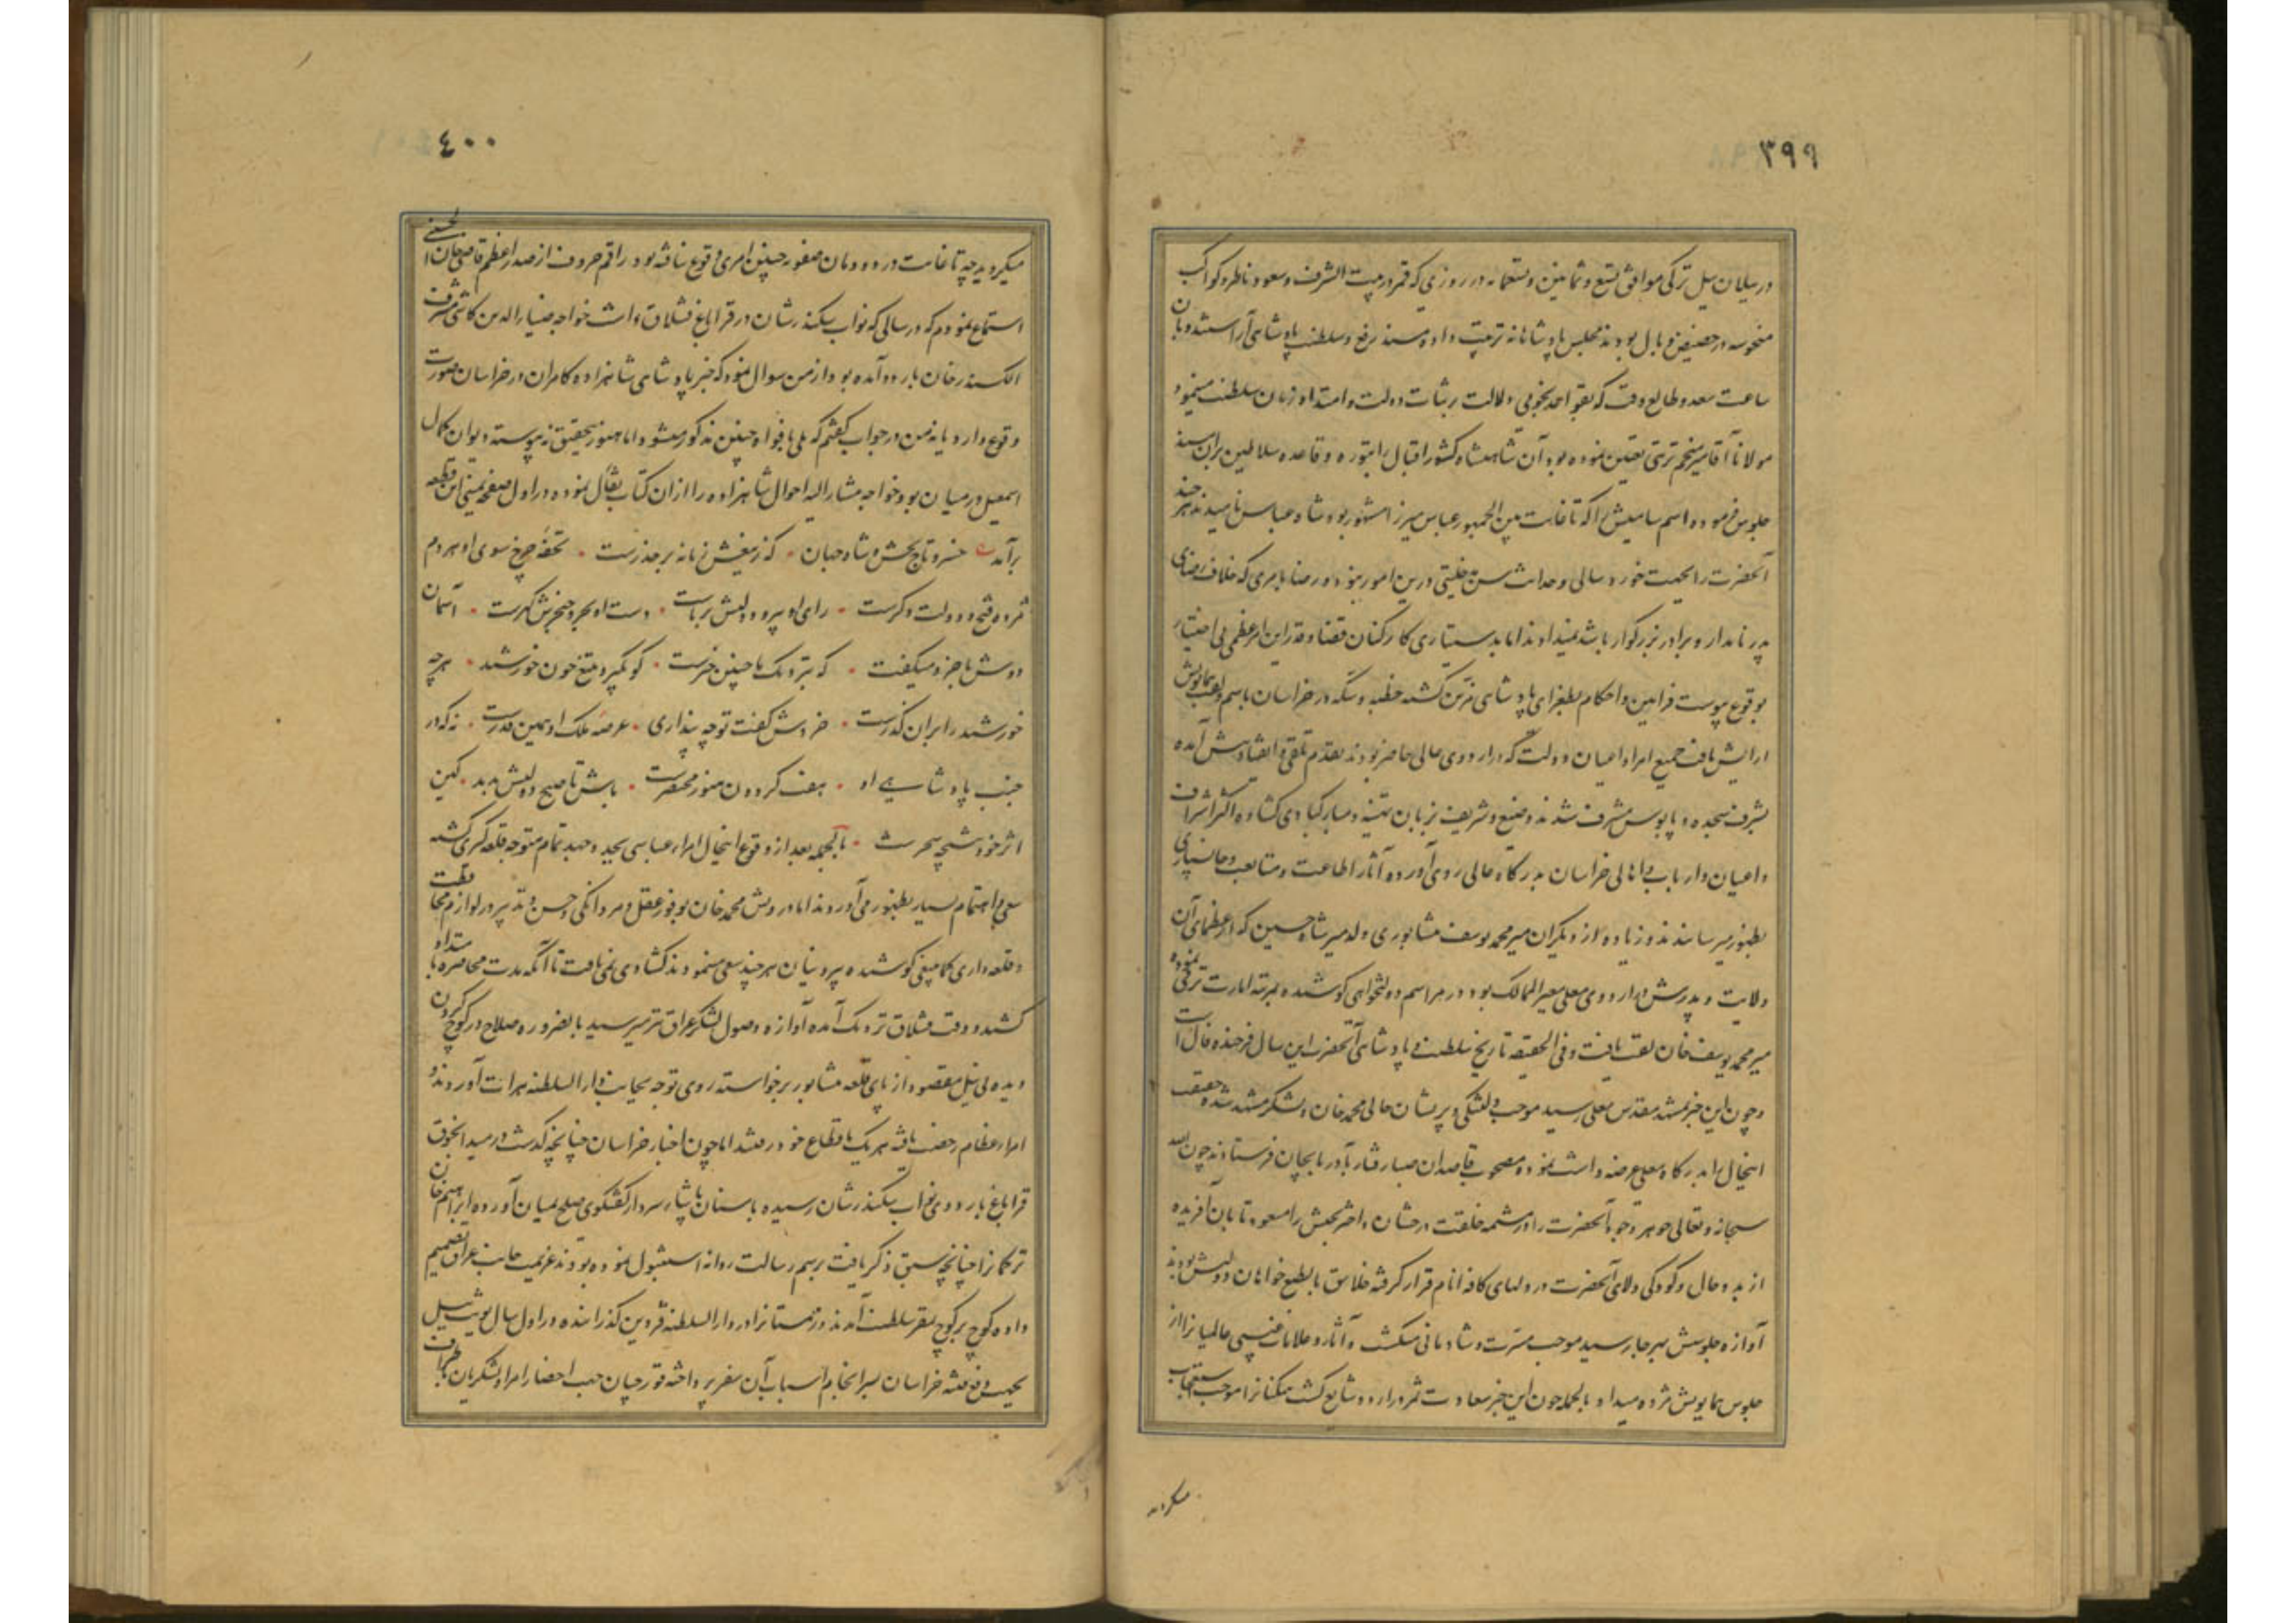 ۳۹۹
در ییلان ییل ترکی موافق تسع و ثمانین و تسعمایه در روزی که قمر در بیت الشرف و سعود ناظر و کواکب
منحوسه در حضیض وبال بودند مجلس پادشاهانه ترتیب داده مسند رفیع سلطنت پادشاهی آراستند و بان
ساعت سعد و طالع وقت که بقواعد نجومی دلالت بر ثبات دولت و امتداد زمان سلطنت مینمود
مولانا آقامیر منجم ترتی تعیین نموده بود آن شاهنشاه کشور اقبال را بتوره و قاعده سلاطین بران مسند
جلوس فرموده اسم سامیش را که تا غایت بین الجمهور عباس میرزا مشهور بود شاه عباس نامیدند هر چند
آنحضرت را بجهت خورد سالی و حداثت سن خلیتی درین امور نبود و رضا بامری که خلاف رضای
پدر نامدار و برادر بزرگوار باشد نمیدادند اما بدستیاری کارکنان قضا و قدر این امر عظمی بی اختیار
بوقوع پیوست فرامین و احکام بطغرای پادشاهی مزین گشته خطبه و سکه در خراسان باسم و لقب همایونش
آرایش یافت جمیع امرا و اعیان دولت که در اردوی عالی حاضر بودند بقدم تلقی و انقیاد پیش آمده
بشرف سجده و پابوس مشرف شدند وضیع و شریف زبان تهنیت و مبارکبادی گشاده اکثر اشراف
و اعیان و ارباب و اهالی خراسان بدرگاه عالی روی آورده آثار اطاعت و متابعت و جانسپاری
بظهور میرسانیدند و زیاده از دیگران میر محمد یوسف نیشابوری ولد میر شاه حسین که از عظمای آن
ولایت و پدرش در اردوی معلی معیر الممالک بود در مراسم دولتخواهی کوشیده بمرتبه امارت ترقی نموده
میر محمد یوسف خان لقب یافت و فی الحقیقه تاریخ سلطنت و پادشاهی آنحضرت این سال فرخنده فال است
و چون این خبر بمشهد مقدس معلی رسید موجب دلتنگی و پریشان حالی محمد خان و لشکر مشهد شده حقیقت
اینحال را بدرگاه معلی عرضه داشت نموده مصحوب قاصدان صبا رفتار بآذربایجان فرستادند چون الله
سبحانه و تعالی جوهر وجود آنحضرت را در مشیمه خلقت درخشان و اختر بختش را مسعود و تابان آفریده
از بدو حال و کودکی ولای آنحضرت در دلهای کافه انام قرار گرفته خلایق بالطبع خواهان دولتش بودند
آوازه جلوسش بهر جا رسید موجب مسرت و شادمانی میگشت و آثار و علامات غیبی عالمیان را از
جلوس همایونش مژده میداد بالجمله چون این خبر سعادت ثمر در اردو شایع گشت همگنان را موجب استعجاب
میگردید
۴۰۰
میگردید چه تا غایت در دودمان صفویه چنین امری وقوع نیافته بود راقم حروف از صدر اعظم قاضی خان الحسینی
استماع نمودم که در سالی که نواب سکندر شان در قراباغ قشلاق داشت خواجه ضیاء الدین کاشی مشرف
الکسندر خان باردو آمده بود از من سوال نمود که خبر پادشاهی شاهزاده کامران در خراسان صورت
وقوع دارد یا نه من در جواب گفتم که بلی بافواه چنین مذکور میشود اما هنوز بتحقیق نه پیوسته دیوان کمال
اسمعیل در میان بود خواجه مشار الیه احوال شاهزاده را از آن کتاب تفأل نموده در اول صفحه یمنی این قطعه
برآمد خسرو تاج بخش و شاه جهان • که ز تیغش زمانه بر حذرست • تحفه چرخ سوی او هر دم
مژده فتح و دولت و کرست • رای او پیر و دولتش برناست • دست او بحر و خنجرش گهرست • آسمان
دوش با خرد میگفت • که بنزدیک ما چنین خبرست • کو بگیرد بتیغ چون خورشید • هر چه
خورشید را بران گذرست • خردش گفت تو چه پنداری • عرصه ملک او همین قدرست • نه که در
جنب پادشاهی او • هفت گردون هنوز مختصرست • باش تا صبح دولتش بدمد • کین
اثر خود نتیجه سحرست • بالجمله بعد از وقوع اینحال امراء عباسی بجد و جهد تمام متوجه قلعه گیری گشته
سعی و اهتمام بسیار بظهور می آوردند اما درویش محمد خان بوفور عقل و مردانگی و حسن تدبیر در لوازم محافظت
و قلعه داری کما ینبغی کوشیده بیرونیان هر چند سعی مینمودند گشادی نمی یافت تا آنکه مدت محاصره بامتداد
کشید و وقت قشلاق نزدیک آمده آوازه وصول لشکر عراق نیز میرسید بالضروره صلاح در کوچ کردن
دیده بی نیل مقصود از پای قلعه نیشابور برخواسته روی توجه بجانب دار السلطنه هرات آوردند و
امراء عظام رخصت یافته هر یک باقطاع خود رفتند اما چون اخبار خراسان چنانچه گذشت در میدانجوق
قراباغ باردوی نواب سکندر شان رسیده با سنان پاشاء سردار گفتگوی صلح بمیان آورده ابراهیم خان
ترکمان را چنانچه سبق ذکر یافت برسم رسالت روانه استنبول نموده بودند عزیمت جانب عراق تصمیم
داده کوچ بر کوچ بمقر سلطنت آمدند و زمستان را در دار السلطنه قزوین گذرانیده در اول سال یونت ییل
بجهت دفع فتنه خراسان بسرانجام اسباب آن سفر پرداخته قورچیان جهت احضار امرا و لشکریان باطراف